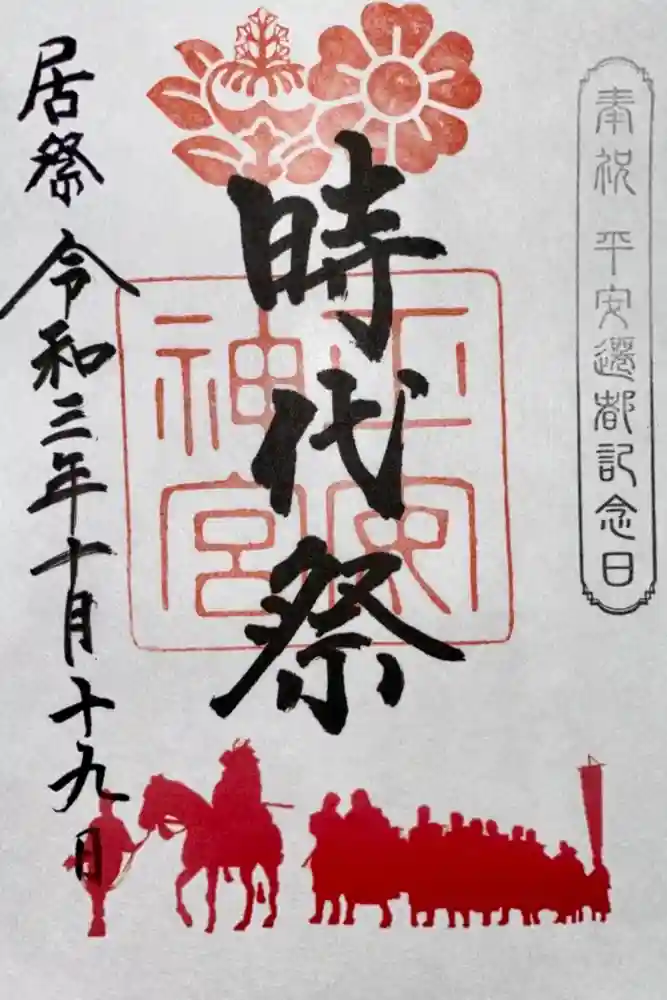 奉祝 平安遷都記念日
時代祭
平安神宮
居祭 令和三年十月十九日